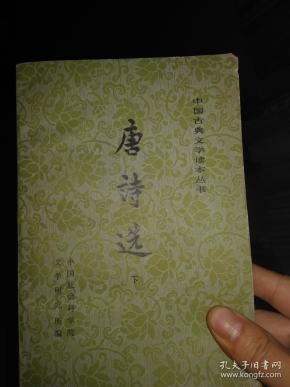 中国古典文学读本丛书
唐詩选
下
中国社会科学院
文学研究所编
孔夫子旧书网